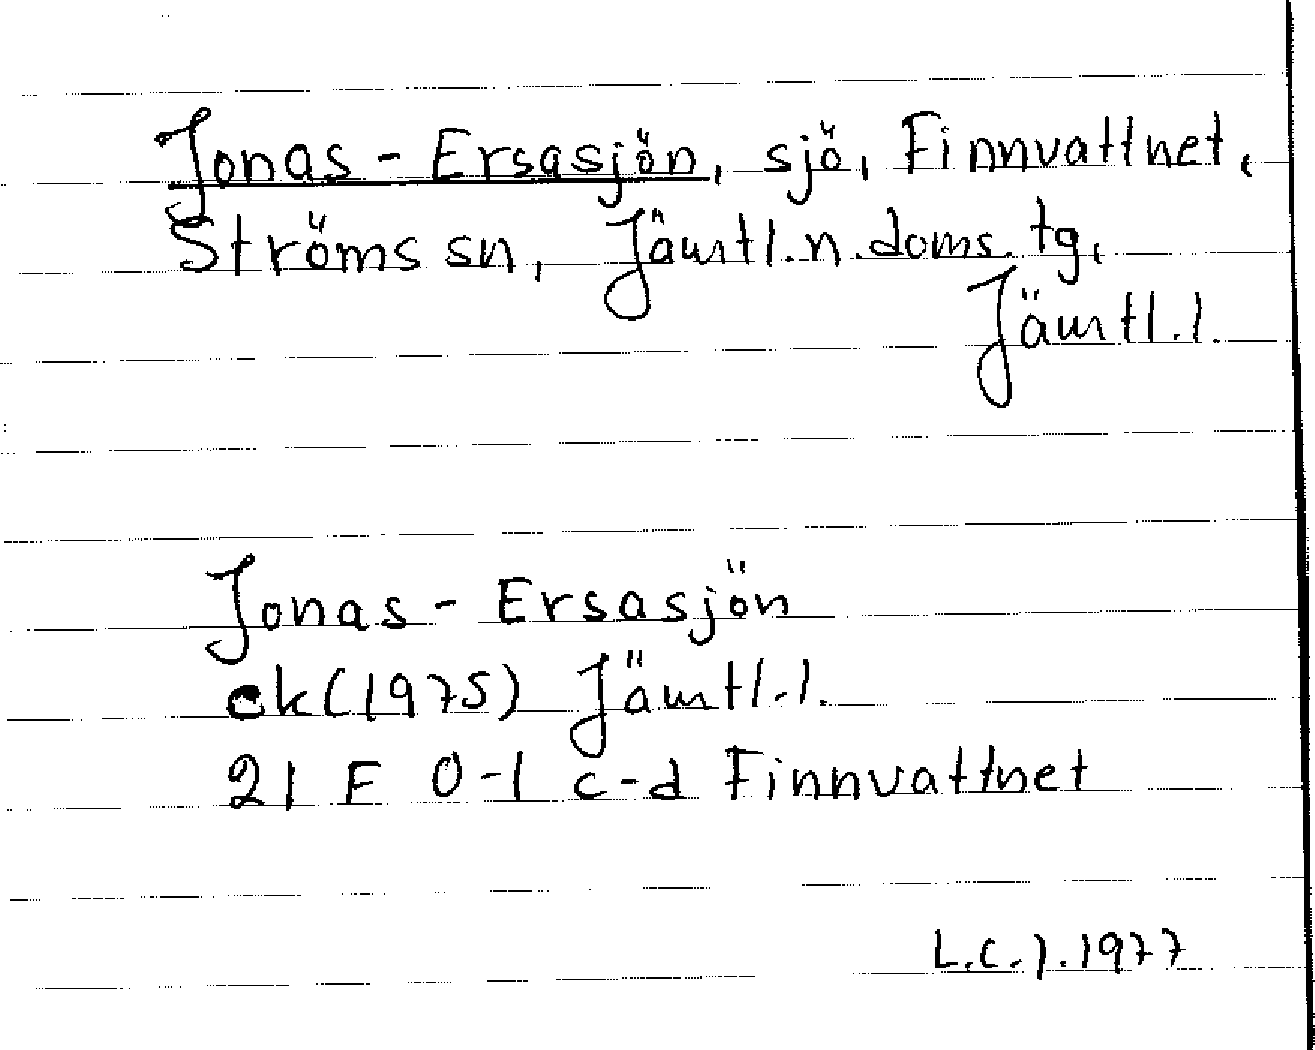 Jonas-Ersasjön, sjö, Finnvattnet,
Ströms sn, Jämtl. n. doms. tg,
Jämtl. l.
Jonas-Ersasjön
ek (1975) Jämtl. l.
21 F 0-1 c-d Finnvattnet
L.C.J. 1977